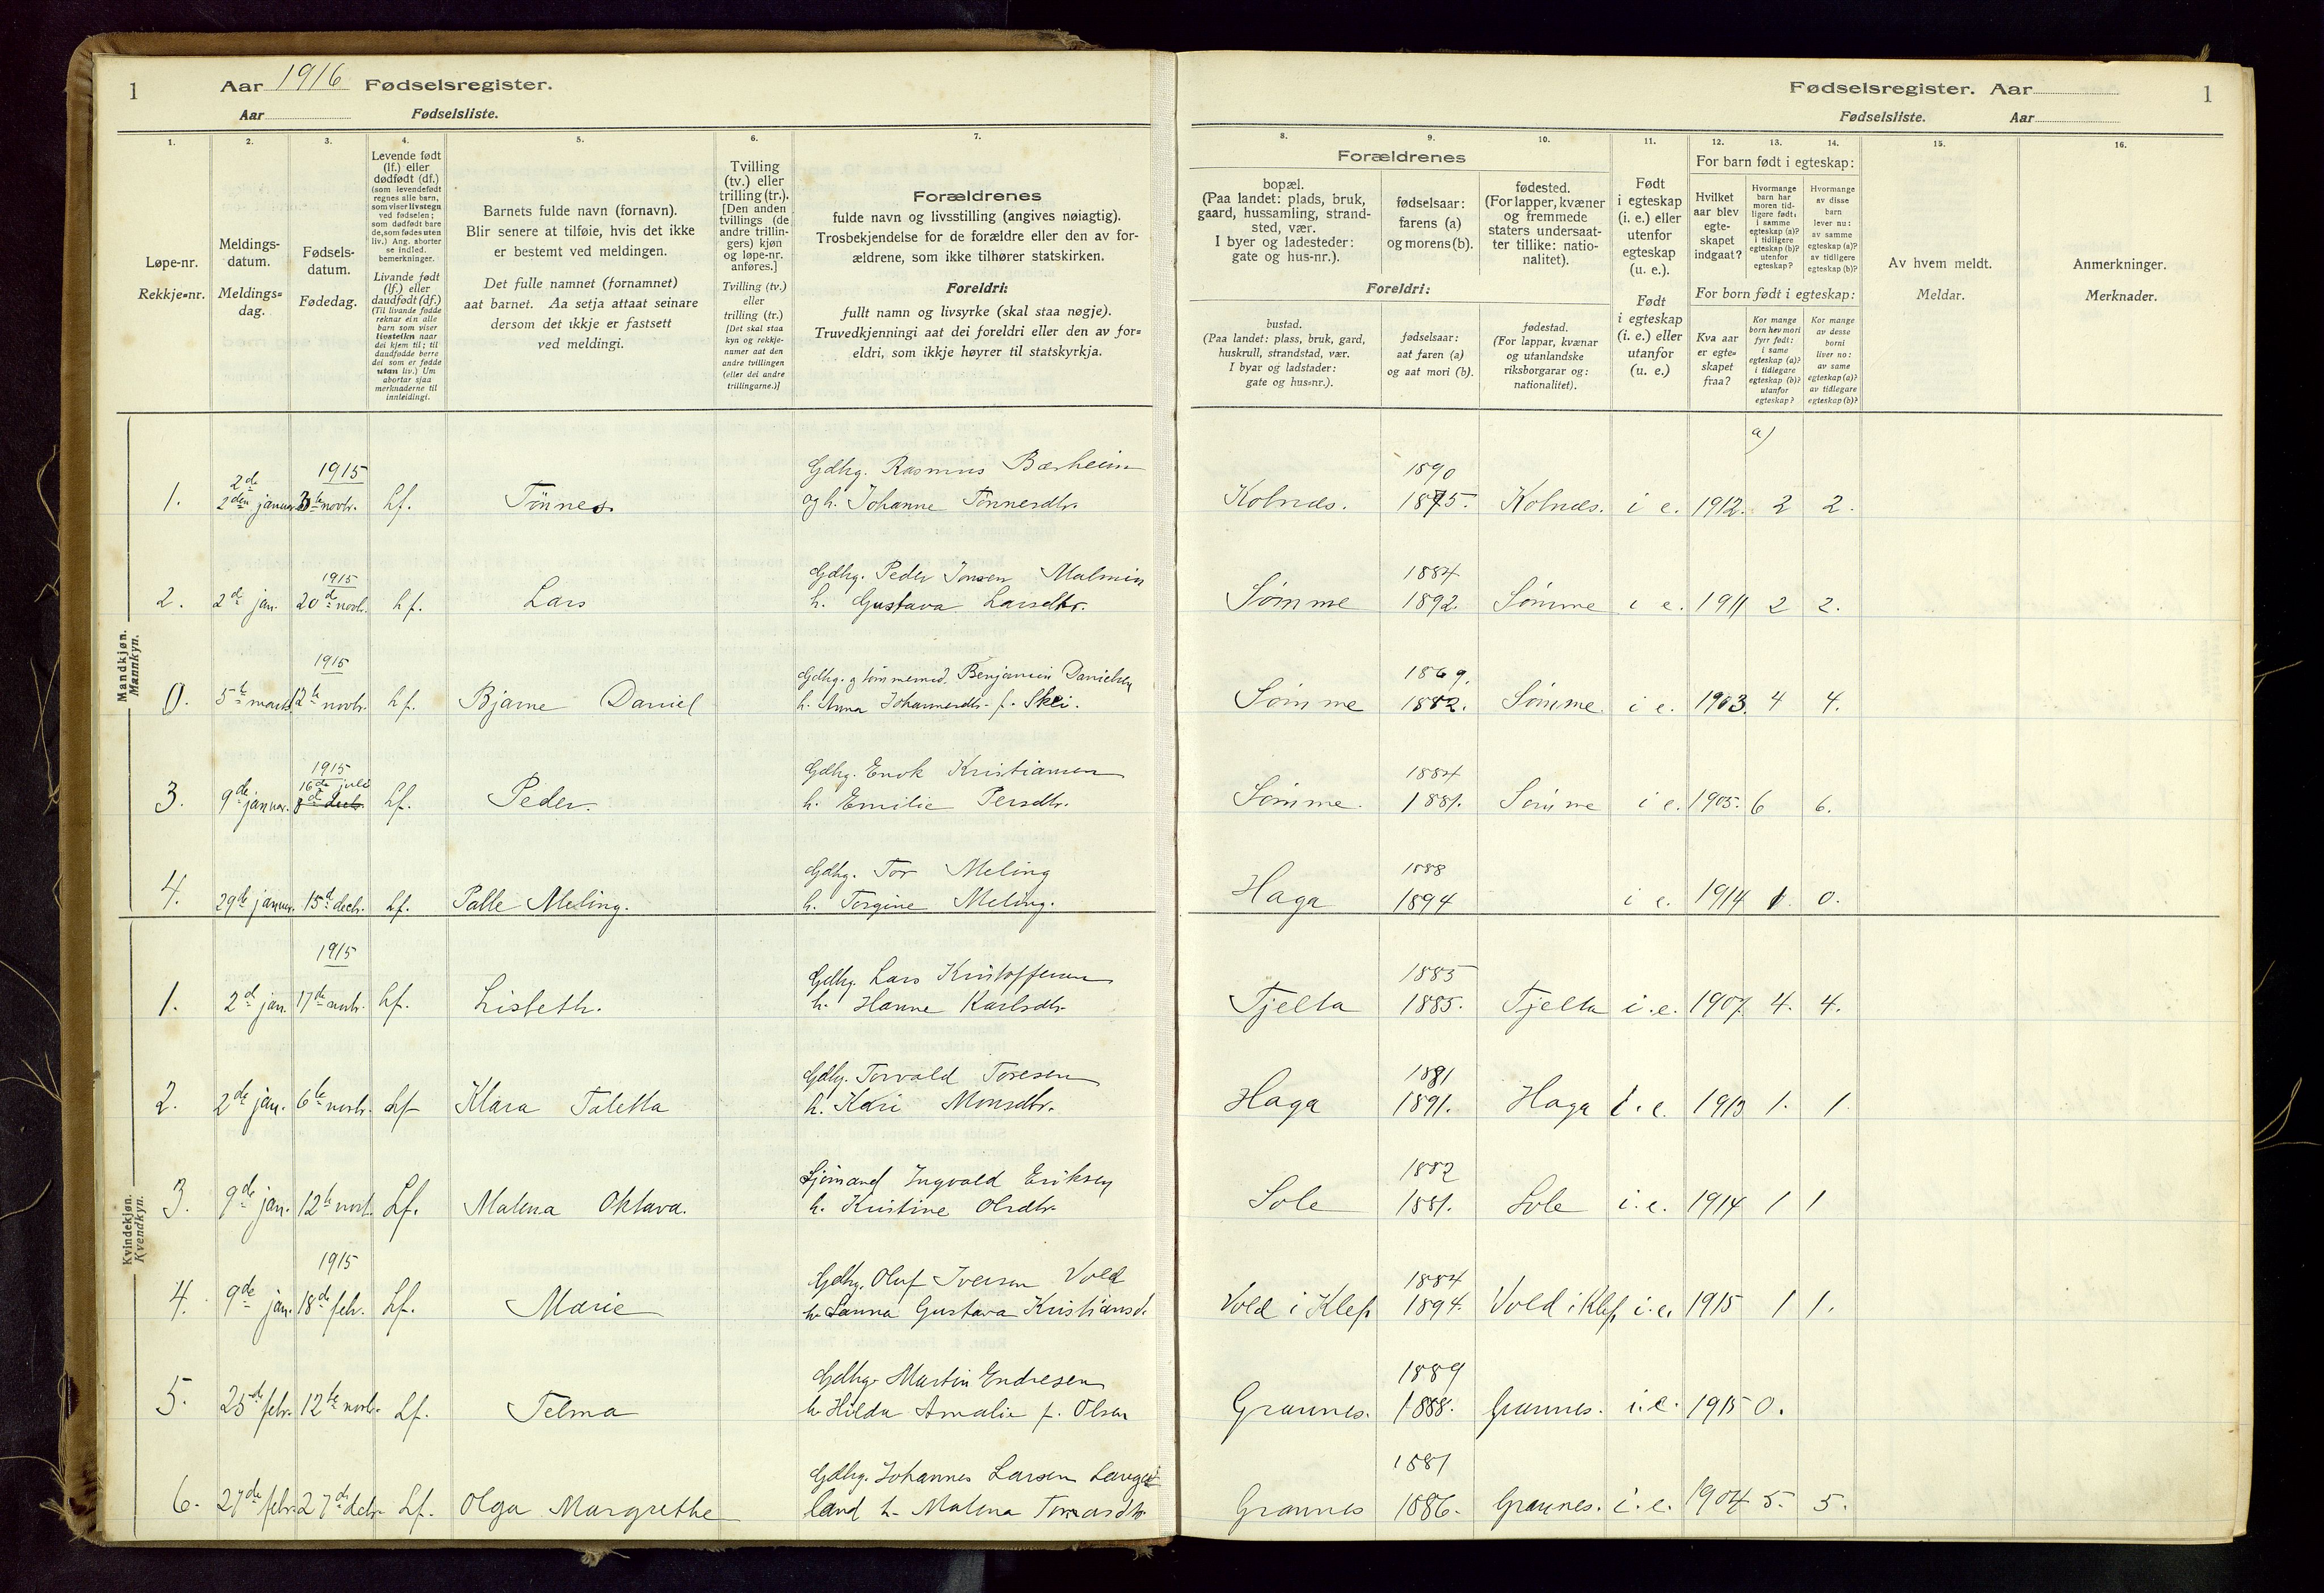 1 Aar 1916 Fødselsregister.
Aar Fødselsliste.
Fødselsregister. Aar 1
Fødselsliste. Aar
1. 2. 3. 4. 5. 6. 7.
8. 9. 10. 11. 12. 13. 14. 15. 16.
Løpe-nr.
Rekkje=nr.
Meldings-
datum.
Meldings=
dag.
Fødsels-
datum.
Fødedag.
Levende født
(lf.) eller
dødfødt (df.)
(som levendefødt
regnes alle barn,
som viser livstegn
ved fødselen;
som dødfødt bare
de, som fødes uten
liv.) Ang. aborter
se indled.
bemerkninger.
Livande født
(lf.) eller
daudfødt (df.)
(Til livande fødde
reknar ein alle
barn som viser
livsteikn naar
dei kjem til; til
daudfødde berre
dei som er fødde
utan liv.) Um
abortar sjaa
merknaderne til
innleidingi.
Barnets fulde navn (fornavn).
Blir senere at tilføie, hvis det ikke
er bestemt ved meldingen.
Det fulle namnet (fornamnet)
aat barnet. Aa setja attaat seinare
dersom det ikkje er fastsett
ved meldingi.
Tvilling
(tv.) eller
trilling (tr.).
[Den anden
tvillings (de
andre trillin-
gers) kjøn
og løpe-nr.
anføres.]
Tvilling (tv.)
eller
trilling (tr.)
[Det skal staa
kyn og rekkje-
numer aat den
andre tvillingen
(eller dei andre
trillingarne.)]
Forældrenes
fulde navn og livsstilling (angives nøiagtig).
Trosbekjendelse for de forældre eller den av for-
ældrene, som ikke tilhører statskirken.
Foreldri:
fullt namn og livsyrke (skal staa nøgje).
Truvedkjenningi aat dei foreldri eller den av for=
eldri, som ikkje høyrer til statskyrkja.
Forældrenes
bopæl.
(Paa landet: plads, bruk,
gaard, hussamling, strand-
sted, vær.
I byer og ladesteder:
gate og hus-nr.).
fødselsaar:
farens (a)
og morens (b).
fødested.
(For lapper, kvæner
og fremmede
staters undersaat-
ter tillike: natio-
nalitet).
Foreldri:
bustad.
(Paa landet: plass, bruk, gard,
huskrull, strandstad, vær.
I byar og ladstader:
gate og hus=nr.).
fødselsaar:
aat faren (a)
og aat mori (b).
fødestad.
(For lappar, kvænar
og utanlandske
riksborgarar og:
nationalitet).
Født
i egteskap
(i. e.) eller
utenfor
egteskap
(u. e.).
Født
i egteskap
(i. e.) eller
utanfor
(u. e.)
For barn født i egteskap:
Hvilket
aar blev
egte-
skapet
indgaat?
Hvormange
barn har
moren tid-
ligere født:
i samme
egteskap (a)?
i tidligere
egteskap (b)?
utenfor
egteskap?
Hvormange
av disse
barn
lever nu:
av samme
egteskap (a)?
av tidligere
egteskap (b)?
For born født i egteskap:
Kva aar
er egte=
skapet
fraa?
Kor mange
born hev mori
fyrr født:
i same
egteskap (a)?
i tidlegare
egteskap (b)?
utanfor
egteskap?
Kor mange
av desse
borni
liver no:
av same
egteskap (a)?
av tidlegare
egteskap (b)?
Av hvem meldt.
Meldar.
Anmerkninger.
Merknader.
Mandkjøn.
Mannkyn.
a)
1915 Gdbg. Rasmus Bærheim 1890
1. 2den januar 3te novbr. Lf. Tønnes. og h. Johanne Tønnesdtr. Kolnæs. 1875. Kolnæs. i e. 1912. 2 2.
1915 Gdbg. Peder Jonsen Malmin 1884
2. 2de jan. 20de novb. Lf. Lars h. Gustava Larsdtr. Sømme 1892. Sømme i e. 1911 2 2.
1915 Gdbg. og tømmermd. Benjamin Danielsen 1869.
0. 5te marts 12te novbr. Lf. Bjarne Daniel h. Anna Johannesdtr. f. Skei. Sømme 1882. Sømme. i e. 1903. 4 4.
1915
16de juli Gdbg. Enok Kristiansen 1884
3. 9de januar. 8de decb. Lf. Peder. h. Emilie Persdtr. Sømme. 1881. Sømme i e. 1905. 6 6.
Gdbg. Tor Meling 1888
4. 29de januar. 15d decbr. Lf. Palle Meling. h. Torgine Meling. Haga 1894 i e. 1914 1. 0.
Kvindekjøn.
Kvendkyn.
1915 Gdbg. Lars Kristoffersen 1883
1. 2d jan. 17de Lf. Lisbeth. h. Hanne Karlsdtr. Tjelta 1885. Tjelta i.e. 1907. 4. 4.
Gdbg. Torvald Toresen 1881
2. 2de jan. 6te novbr. Lf Klara Taletta h. Kari Monsdtr. Haga 1891. Haga i.e. 1913 1. 1
Sjømand Ingvald Eriksen 1882
3. 9de jan. 12te novb. Lf. Malena Oktava. h. Kristine Olsdtr. Sole 1881. Sole i.e. 1914 1 1
1915 Gdbg. Oluf Iversen Vold 1884
4. 9de jan. 18de febr. Lf. Marie h. Sanna Gustava Kristiansd. Vold i Klep 1894. Vold i Klep i.e. 1915 1 1.
Gdbg. Martin Endresen 1889
5. 25de febr. 12te novbr. Lf. Telma h. Hilda Amalie f. Olsen Grannes. 1888. Grannes. i.e. 1915 0.
Gdbg. Johannes Larsen Lange- 1881
6. 27de febr. 27de decbr. Lf. Olga Margrethe land h. Malena Grannes 1886. Grannes. i.e. 1904 5. 5.